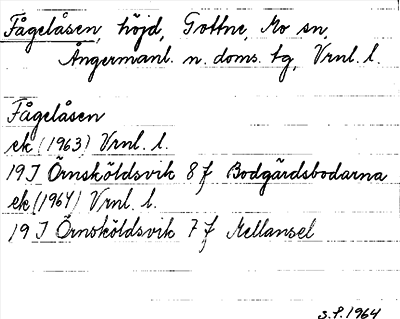 Fågelåsen, höjd, Gottne, Mo sn,
Ångermanl. n. doms. tg, Vrnl. l.
Fågelåsen
ek (1963) Vrnl. l.
19 I Örnsköldsvik 8 f Bodgårdsbodarna
ek (1964) Vrnl. l.
19 I Örnsköldsvik 7 f Mellansel
s. f. 1964